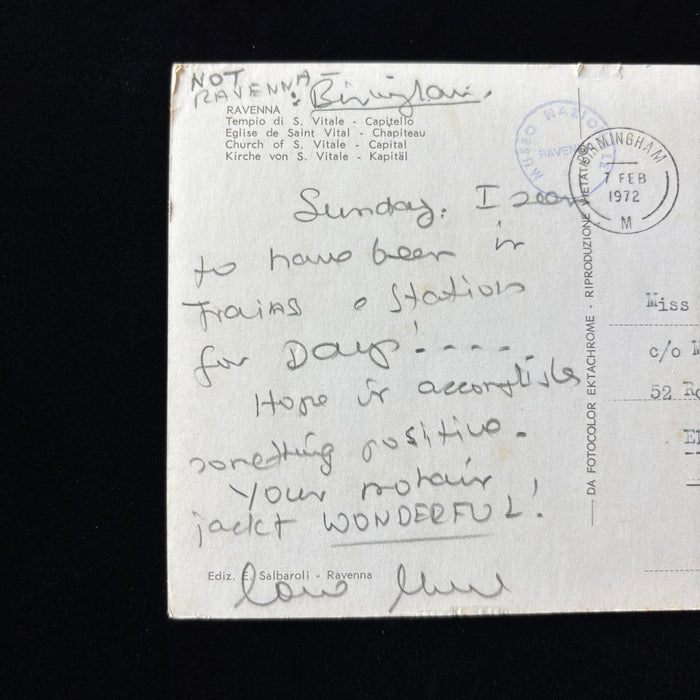 NOT
RAVENNA - : Birmingham.
RAVENNA
Tempio di S. Vitale - Capitello
Eglise de Saint Vital - Chapiteau
Church of S. Vitale - Capital
Kirche von S. Vitale - Kapitäl
Sunday. I seem
to have been in
Trains & Stations
for Days! - - - -
Hope it accomplishes
something positive.
Your mohair
jackt WONDERFUL!
Love
Ediz. E. Salbaroli - Ravenna
DA FOTOCOLOR EKTACHROME - RIPRODUZIONE VIETATA
MUSEO NAZION
RAVEN
BIRMINGHAM
7 FEB
1972
M
Miss
c/o M
52 Ro
El